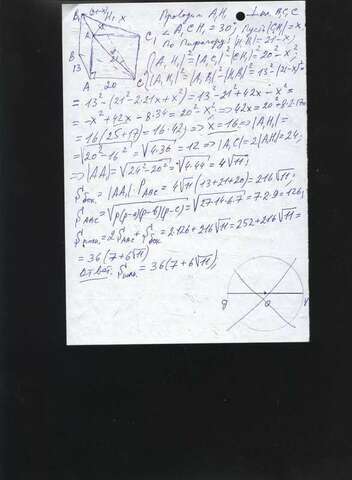 Проводим A₁H₁ ⊥ B₁C₁
∠A₁CH₁ = 30°, Пусть |CH₁| = x,
По Пифагору: |H₁B₁| = 21-x,
{|A₁H₁|² = |A₁C₁|² - |C₁H₁|² = 20² - x²,
{|A₁H₁|² = |A₁B₁|² - |H₁B₁|² = 13² - (21-x)² =
= 13² - (21² - 2·21x + x²) = 13² - 21² + 42x - x² =
= -x² + 42x - 8·34 = 20² - x² ⇒ 42x = 20² + 8·2·17 =
= 16(25+17) = 16·42; ⇒ x = 16 ⇒ |A₁H₁| =
= √20² - 16² = √4·36 = 12 ⇒ |A₁C| = 2|AH₁| = 24,
⇒ |AA₁| = √24² - 20² = √4·44 = 4√11;
Sбок. = |AA₁|·P_ABC = 4√11(13+21+20) = 216√11,
S_ABC = √p(p-a)(p-b)(p-c) = √27·14·6·7 = 7·2·9 = 126,
Sполн. = 2S_ABC + Sбок. = 2·126 + 216√11 = 252 + 216√11 =
= 36(7+6√11)
Ответ: Sполн. = 36(7+6√11),
B
13
A
20
C